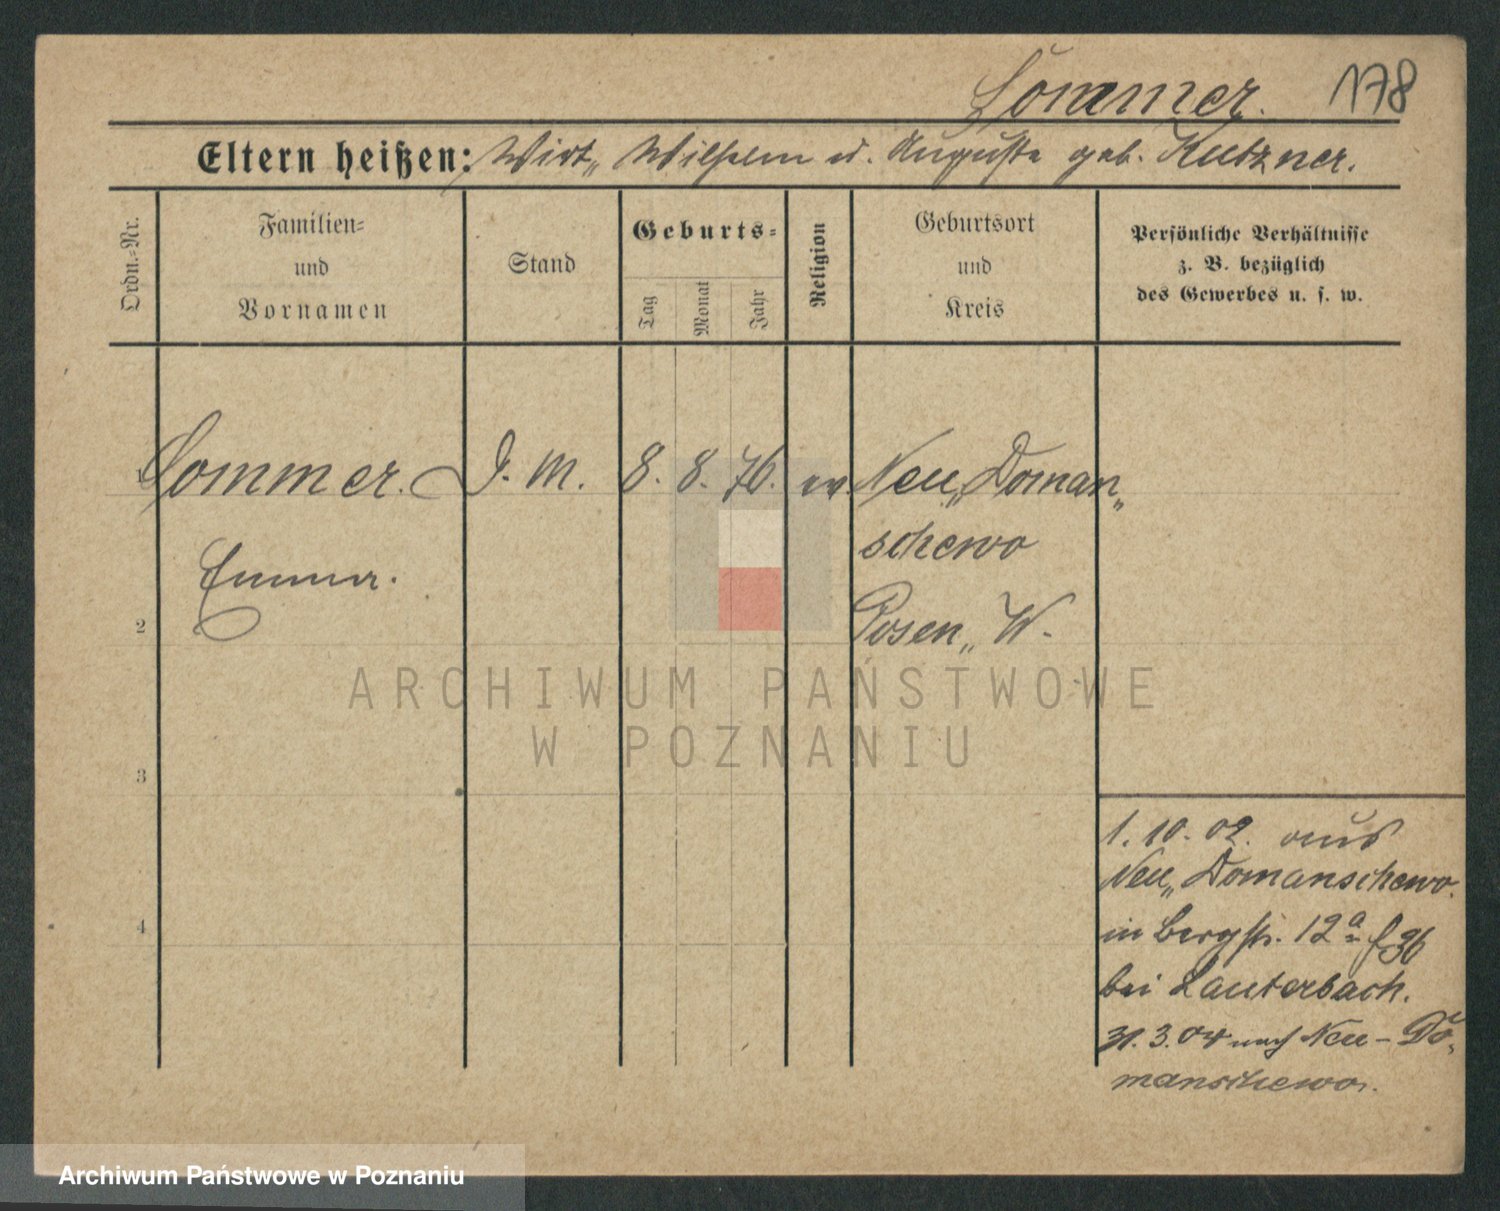 Sommer. 178
Eltern heißen: Wirt„ Wilhelm u. Auguste geb. Kutzner.
Ordn.-Nr.
Familien-
und
Vornamen
Stand
Geburts-
Tag
Monat
Jahr
Religion
Geburtsort
und
Kreis
Persönliche Verhältnisse
z. B. bezüglich
des Gewerbes u. s. w.
1 Sommer. D. M. 8. 8. 76. ev. Neu„ Doman„
schewo
Emma.
2 Posen„ W.
ARCHIWUM PAŃSTWOWE
W POZNANIU
3
4
1. 10. 02. aus
Neu„ Domanschewo.
in Bergstr. 12a
bei Lauterbach.
31. 3. 04 nach Neu- Do-
manschewo.
Archiwum Państwowe w Poznaniu